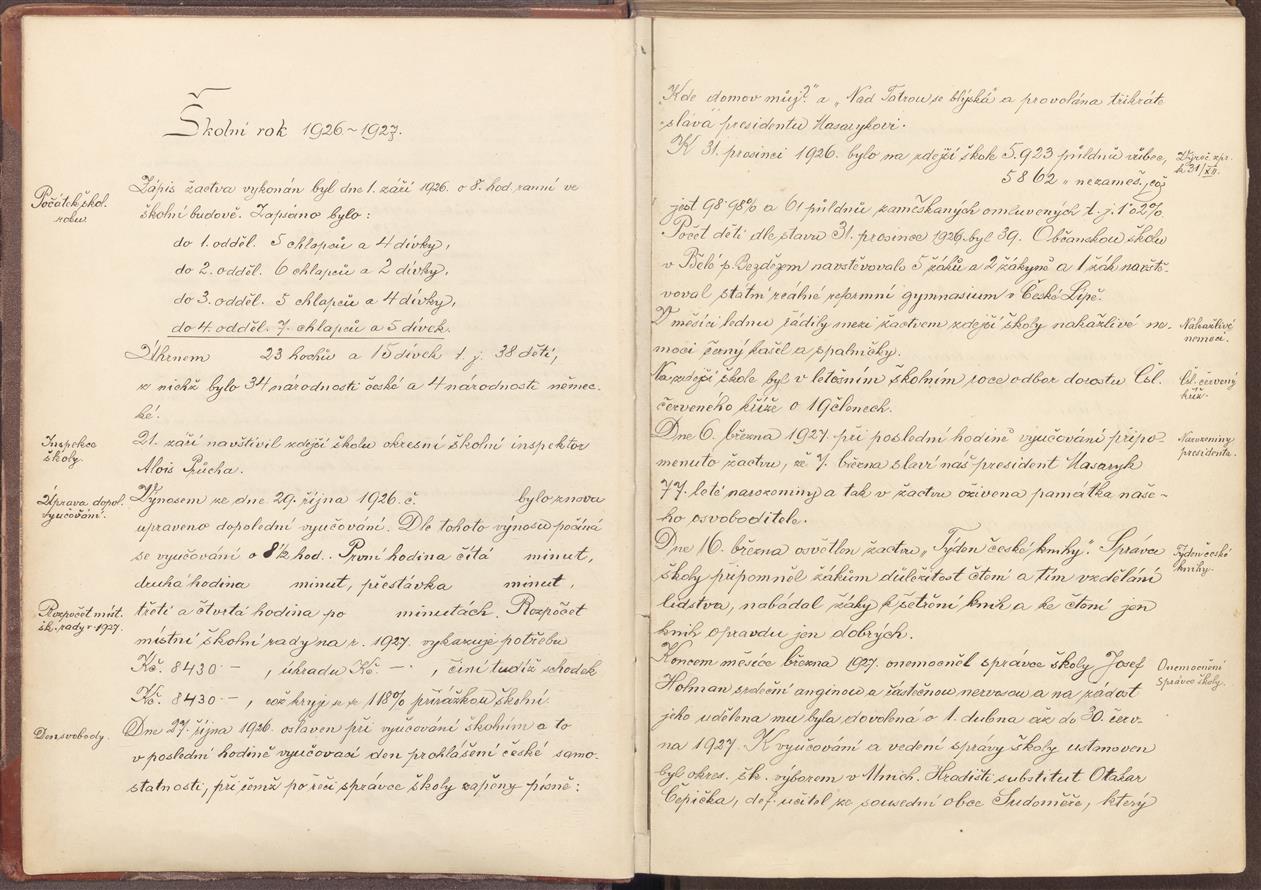 Školní rok 1926-1927.
Počátek škol.
roku.
Zápis žactva vykonán byl dne 1. září 1926 o 8. hod. ranní ve
školní budově. Zapsáno bylo:
do 1. odděl. 5 chlapců a 4 dívky,
do 2. odděl. 6 chlapců a 2 dívky,
do 3. odděl. 5 chlapců a 4 dívky,
do 4. odděl. 7 chlapců a 5 dívek.
Úhrnem 23 hochů a 15 dívek t. j. 38 dětí,
z nichž bylo 34 národnosti české a 4 národnosti němec-
ké.
Inspekce
školy.
21. září navštívil zdejší školu okresní školní inspektor
Alois Průcha.
Úprava dopol.
vyučování.
Výnosem ze dne 29. října 1926 č. bylo znova
upraveno dopolední vyučování. Dle tohoto výnosu počíná
se vyučování o 8½ hod. První hodina čítá minut,
druhá hodina minut, přestávka minut,
Rozpočet míst.
šk. rady r. 1927.
třetí a čtvrtá hodina po minutách. Rozpočet
místní školní rady na r. 1927. vykazuje potřebu
Kč. 8430 –, úhradu Kč. –, činí tudíž schodek
Kč. 8430 –, což kryje se 118% přirážkou školní.
Den svobody.
Dne 27. října 1926. oslaven při vyučování školním a to
v poslední hodině vyučovací den prohlášení české samo-
statnosti, při jemž po řeči správce školy zapěny písně:
Kde domov můj?" a „Nad Tatrou se blýská" a provolána třikráte
sláva presidentu Masarykovi.
K 31. prosinci 1926. bylo na zdejší škole 5.923 půldnů vůbec,
5862 „ nezameš., což
Výroč. zpr.
k 31/XII.
jest 98·98% a 61 půldnů zameškaných omluvených t. j. 1·02%.
Počet dětí dle stavu 31. prosince 1926. byl 39. Občanskou školu
v Bělé p. Bezdězem navštěvovalo 5 žáků a 2 žákyně a 1 žák navště-
voval státní reálné reformní gymnasium v České Lípě.
V měsíci lednu řádily mezi žactvem zdejší školy nakažlivé ne-
moci černý kašel a spalničky.
Nakažlivé
nemoci.
Na zdejší škole byl v letošním školním roce odbor dorostu Čsl.
červeného kříže o 19 členech.
Čsl. červený
kříž.
Dne 6. března 1927. při poslední hodině vyučování připo-
menuto žactvu, že 7. března slaví náš president Masaryk
77. leté narozeniny a tak v žactvu oživena památka naše-
ho osvoboditele.
Narozeniny
presidenta.
Dne 16. března osvětlen žactvu „Týden české knihy". Správce
školy připomněl žákům důležitost čtení a tím vzdělání
lidstva, nabádal žáky k šetření knih a ke čtení jen
knih opravdu jen dobrých.
Týden české
knihy.
Koncem měsíce března 1927. onemocněl správce školy Josef
Holman srdeční anginou a částečnou nervosou a na žádost
jeho udělena mu byla dovolená o 1. dubna až do 30. červ-
na 1927. K vyučování a vedení správy školy ustanoven
byl okres. šk. výborem v Mnich. Hradišti substitut Otakar
Čepička, def. učitel ze sousední obce Sudoměře, který
Onemocnění
správce školy.